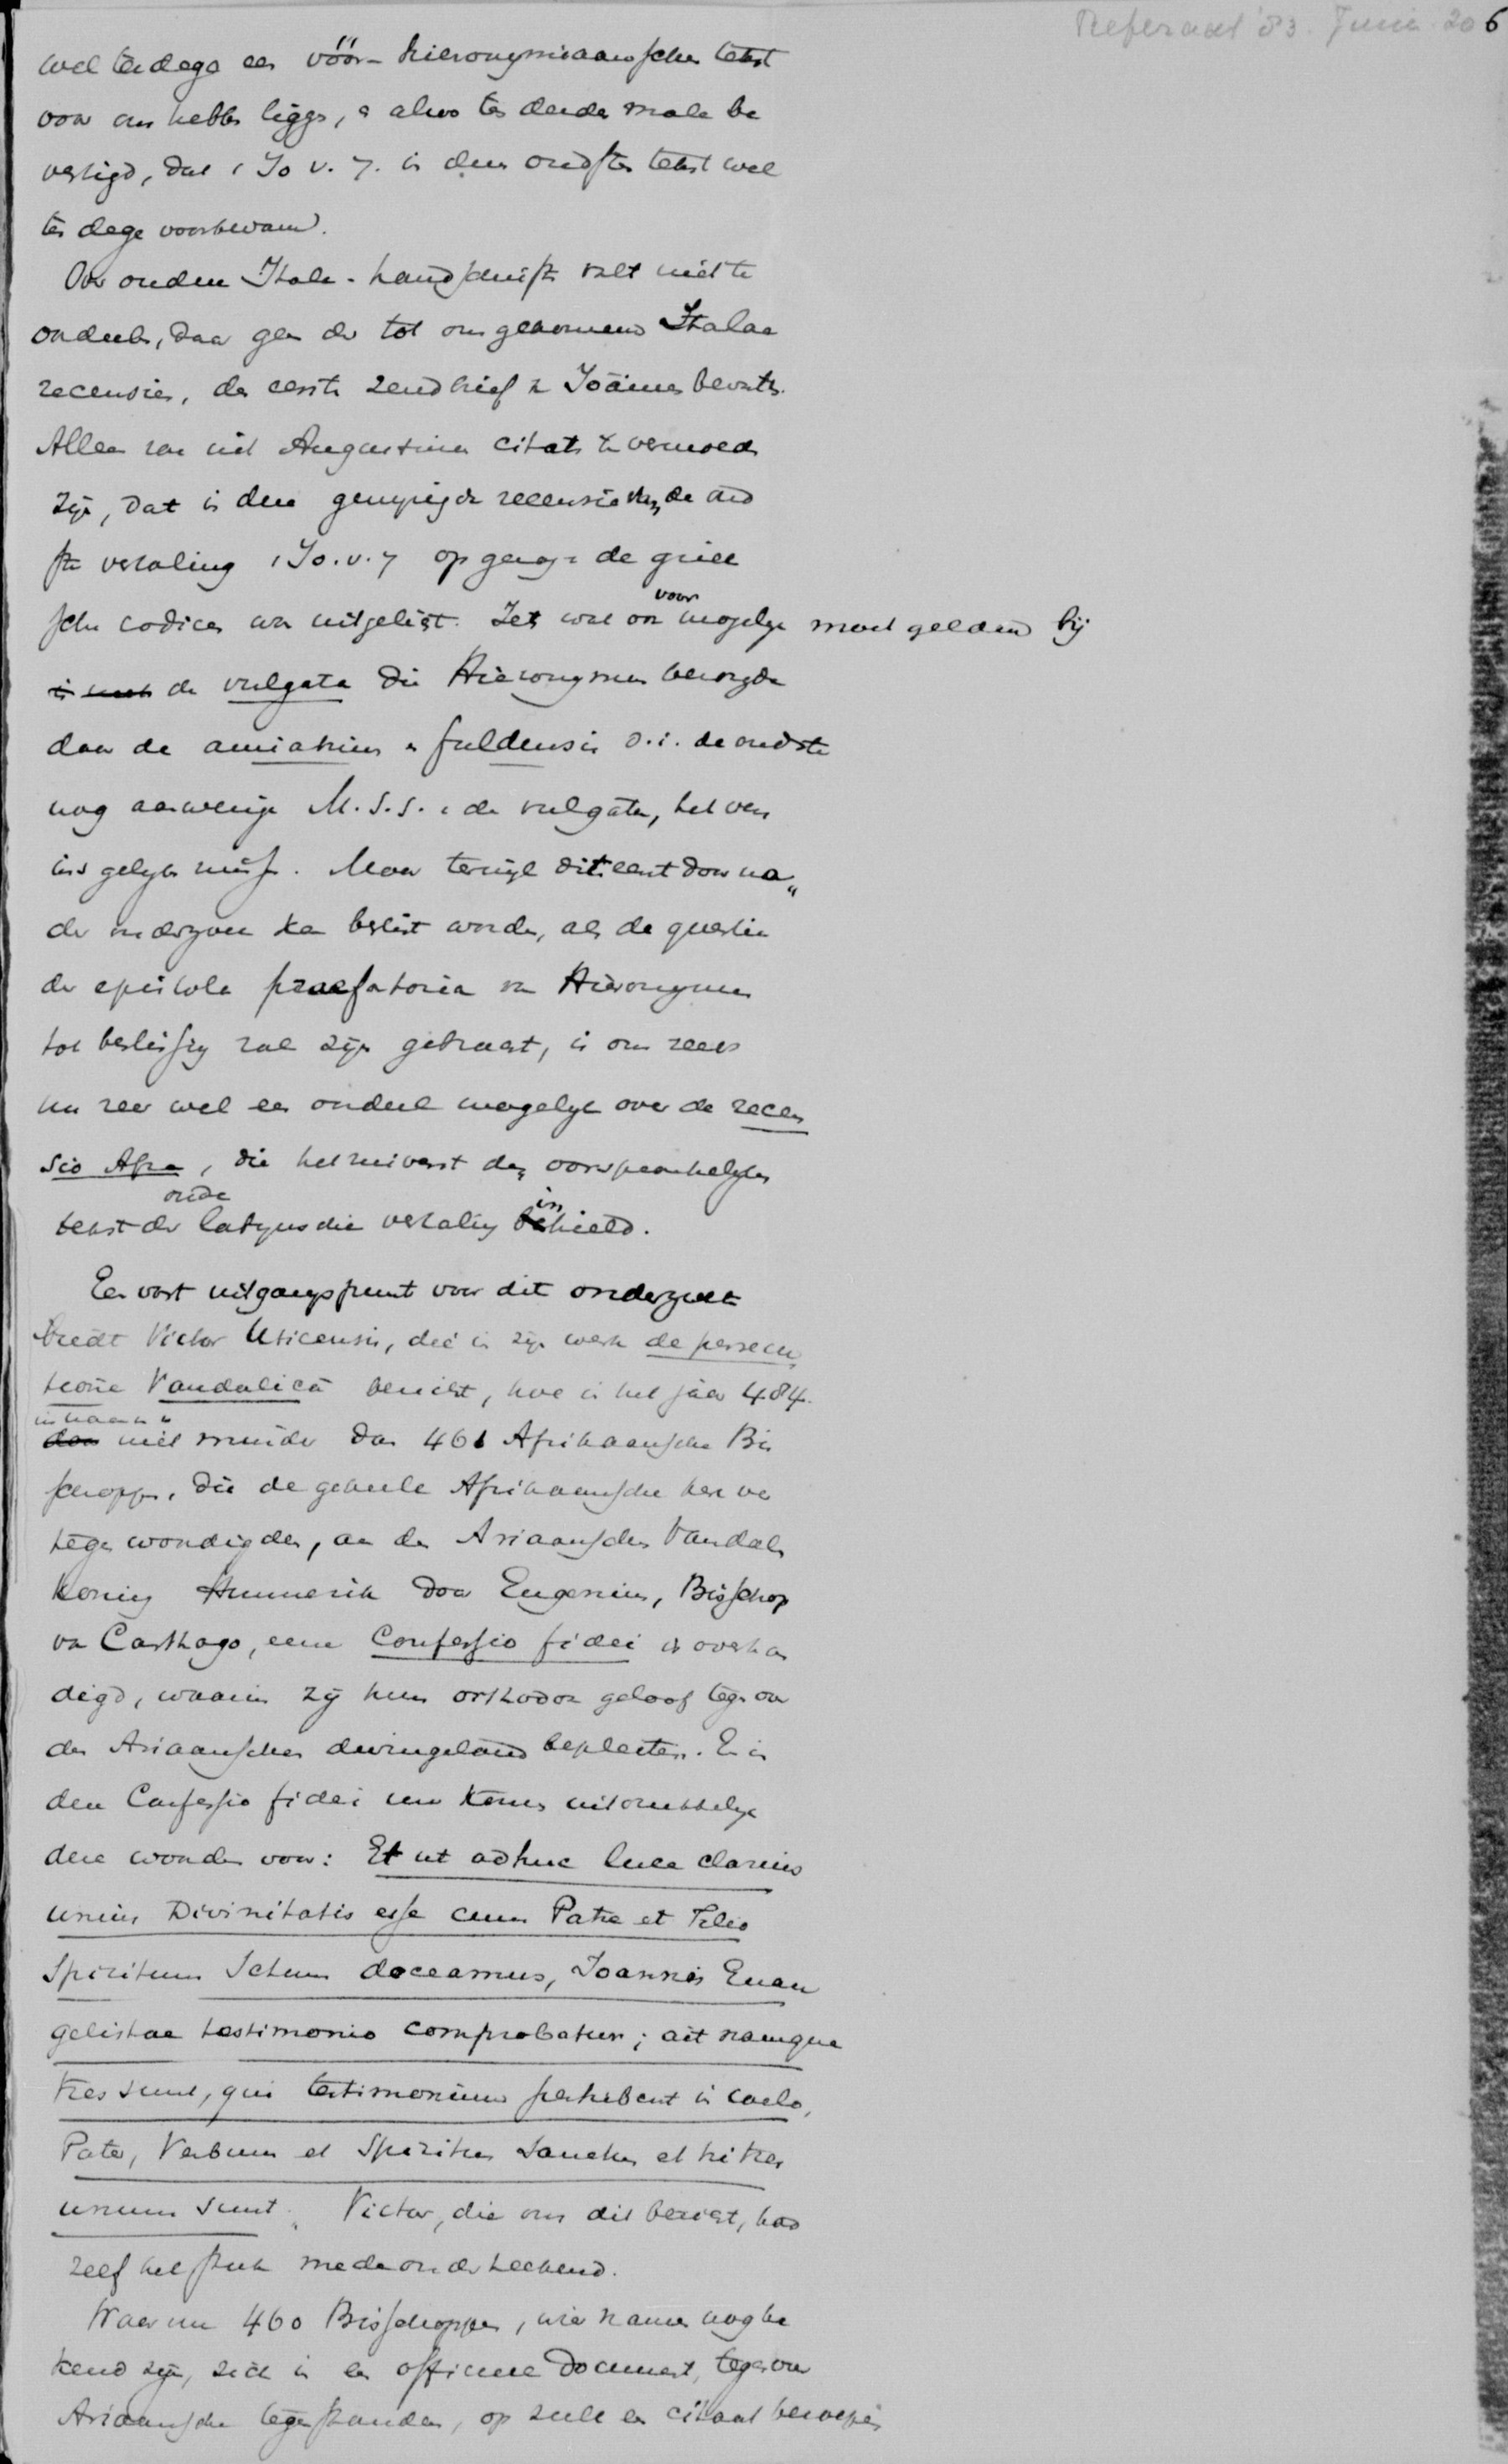 Referaat '83. Junie. 20 6
wel terdege een vóór-hieronymiaanschen tekst
voor ons hebben liggen, en alzoo ten derden male be
vestigd, dat 1 Jo v. 7. in den oudsten tekst wel
ter dege voorkwam.
Over oudere Itala-handschriften valt niet te
oordeelen, daar geen der tot ons gekomene Itala
recensies, de eerste zendbrief v. Joannes bevatten.
Alleen zou uit Augustinus citaten te vermoeden
zijn, dat in deze gewyzigde recensie der oud
ste vertaling 1 Jo. v. 7 op gezag v. de griek
sche codices was uitgelicht. Iets wat ook voor mogelyk moet geldend bij
de vulgata die Hieronymus bezorgde
daar de amiatinus en fuldensis d.i. de oudste
nog aanwezige M.S.S. v. de vulgata, het vers
insgelyks missen. Maar terwijl dit eerst door na„
der onderzoek kan beslist worden, als de questie
der epistola praefatoria van Hieronymus
tot beslissing zal zijn gebracht, is ons reeds
nu zeer wel een oordeel mogelyk over de recen
sio Afra, die het zuiverst den oorspronkelyken
tekst der oude latynsche vertaling inhield.
Een vast uitgangspunt voor dit onderzoek
biedt Victor Uticensis, die in zijn werk de persecu
tione Vandalicâ bericht, hoe in het jaar 484.
niet minder dan 461 Afrikaansche Bis
schoppen, die de geheele Afrikaansche kerk ver
tegenwoordigden, aan den Ariaanschen Vandalen
koning Hunnerik door Eugenius, Bisschop
van Carthago, eene Confessio fidei is overhan
digd, waarin zij hun orthodox geloof tegenover
den Ariaanschen dwingeland bepleiten. En in
deze Confessio fidei nu komen uitdrukkelyk
deze woorden voor: Et ut adhuc luce clarius
unius Divinitatis esse cum Patre et Filio
Spiritum Sctum doceamus, Joannis Evan
gelistae testimonio comprobatur; ait namque
tres sunt, qui testimonium perhibent in caelo,
Pater, Verbum et Spiritus Sanctus et hi tres
unum sunt„ Victor, die ons dit bericht, had
zelf het stuk mede onderteekend.
Waar nu 460 Bisschoppen, wier namen nog be
kend zijn, zich in een officieel Document, tegenover
Ariaansche tegenstanders, op zulk een citaat beroepen